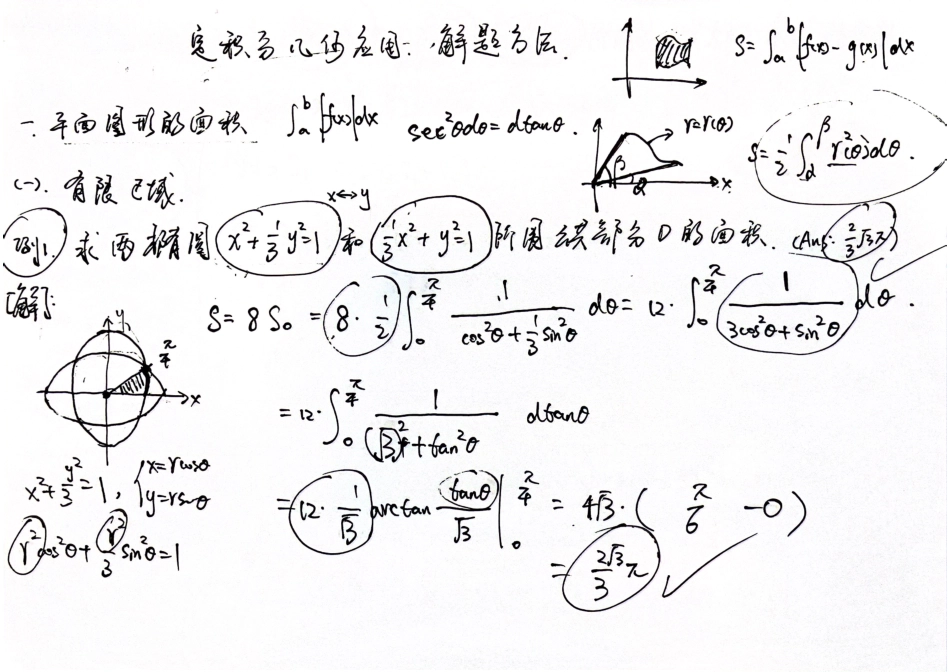 定积分几何应用:解题方法.
S=∫ₐᵇ|f(x)-g(x)|dx
一.平面图形的面积 ∫ₐᵇ|f(x)|dx sec²θdθ=dtanθ.
r=r(θ)
β
α
x
S=½∫_α^β r²(θ)dθ.
(一).有限区域.
x↔y
例1 求两椭圆 x²+⅓y²=1 和 ⅓x²+y²=1 所围公共部分D的面积. (Ans: 2/3 √3π)
[解]:
S=8S₀=8·½∫₀^(π/4) 1/(cos²θ+⅓sin²θ) dθ=12·∫₀^(π/4) 1/(3cos²θ+sin²θ) dθ.
y
π/4
x
=12·∫₀^(π/4) 1/((√3)²+tan²θ) dtanθ
x²+y²/3=1, {x=rcosθ
y=rsinθ
=12·1/√3 arctan tanθ/√3 |₀^(π/4) =4√3·(π/6-0)
r²cos²θ+r²/3 sin²θ=1
=2√3/3 π